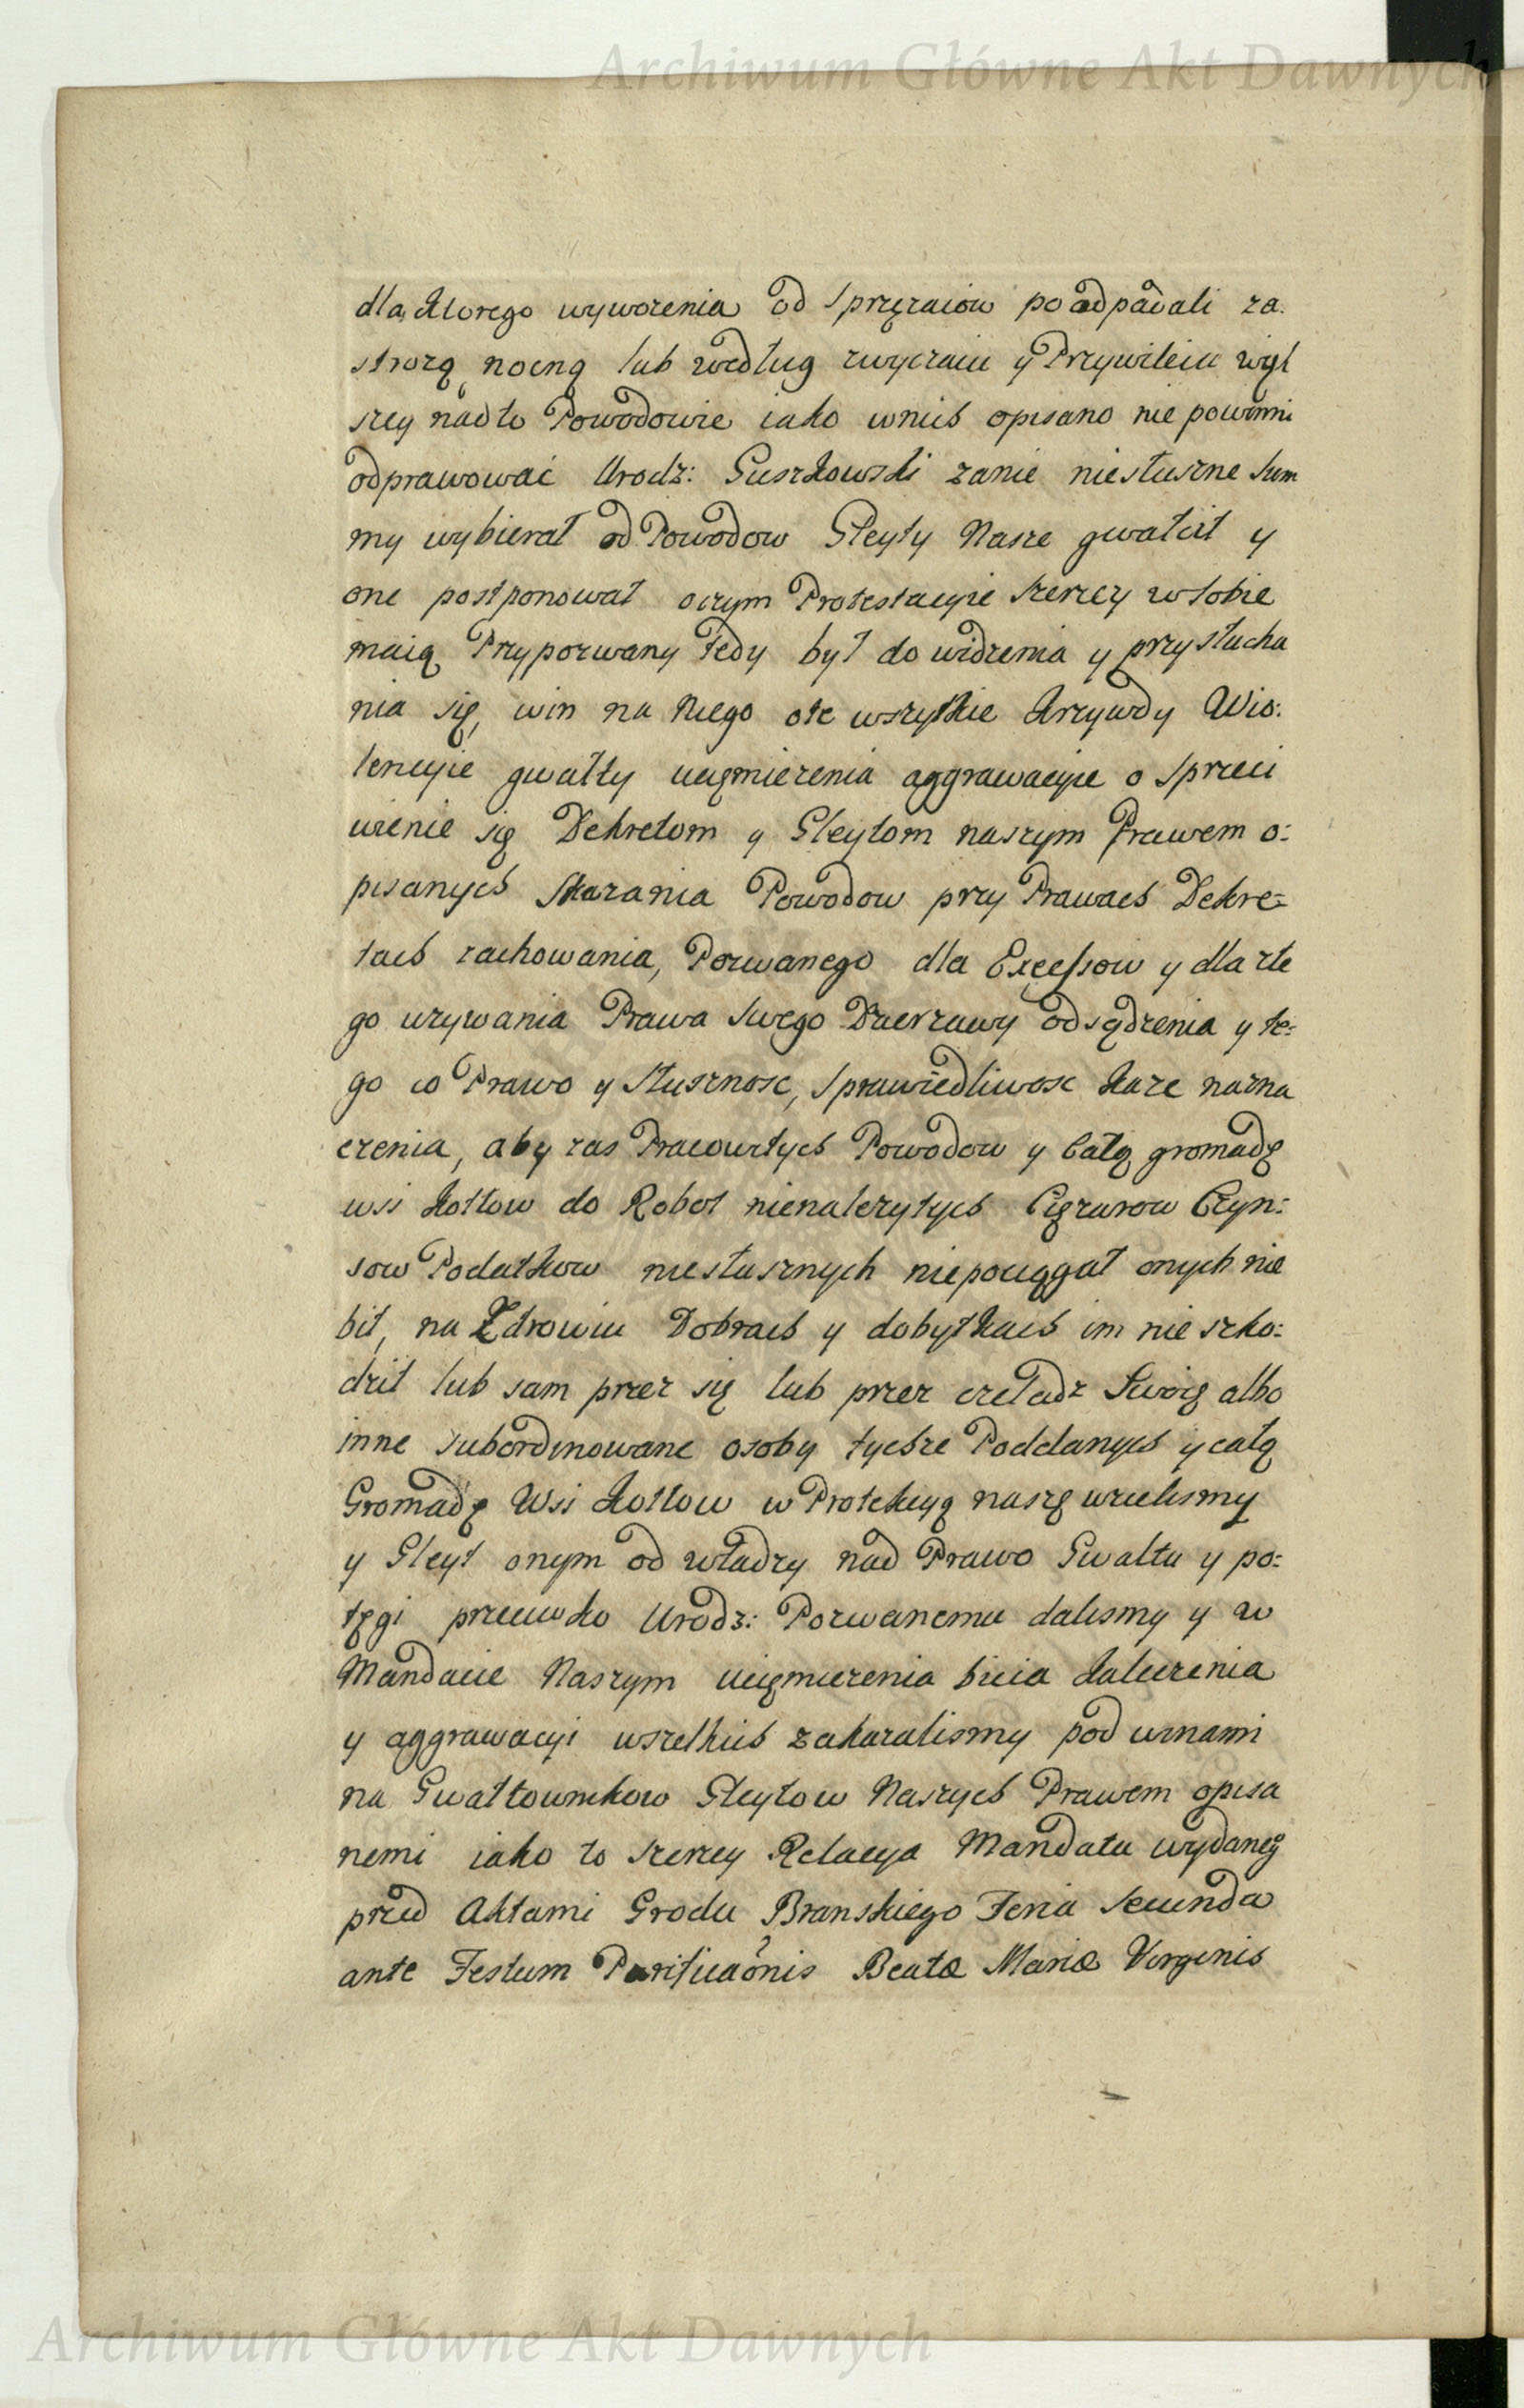 Archiwum Główne Akt Dawnych
dla ktorego wyworenia od Sprzęraiow poodpadali za:
strozą nocną lub według zwyczaiu y Przywileiu wył
szey nadto Powodowie iako wnich opisano nie powinni
odprawować Urodz: Guszkowski zanie niesłuszne Sum
my wybierał od Powodow Gleyty Nasze gwałcił y
one postponował oczym Protestacyie szerzey w sobie
maią Przypozwany tedy był do widzenia y przysłucha
nia się, win na niego ote wszytkie krzywdy Wio:
lencyie gwałty ucięmiezenia aggrawacyie o sprzeci
wienie się Dekretom y Gleytom naszym Prawem o:
pisanych Skazania Powodow przy Prawach Dekre=
tach zachowania, Pozwanego dla Excessow y dla złe
go uzywania Prawa swego Dzierzawy odsądzenia y te:
go co Prawo y Słusznosc, Sprawiedliwosc kaze nazna
czenia, aby zas Pracowitych Powodow y Całą gromadę
wsi Kotłow do Robot nienalezytych Cięzarow Czyn:
sow Podatkow niesłusznych niepociągał onych nie
bił, na Zdrowiu Dobrach y dobytkach im nie szko:
dził lub sam przez się lub przez czeladz Swoię albo
inne subordinowane osoby tychze Poddanych y całą
Gromadę Wsi Kotłow w Protekcyą naszę wzielismy
y Gleyt onym od władzy nad Prawo Gwałtu y po:
tęgi przeciwko Urodz: Pozwanemu dalismy y w
Mandacie Naszym ucięmiezenia bicia kaleczenia
y aggrawacyi wszelkich zakazalismy pod winami
na Gwałtownikow Gleytow Naszych Prawem opisa
nemi iako to szerzey Relacya Mandatu wydaneg
przed Aktami Grodu Branskiego Feria Secunda
ante Festum Purificaonis Beatæ Mariæ Virginis
Archiwum Główne Akt Dawnych